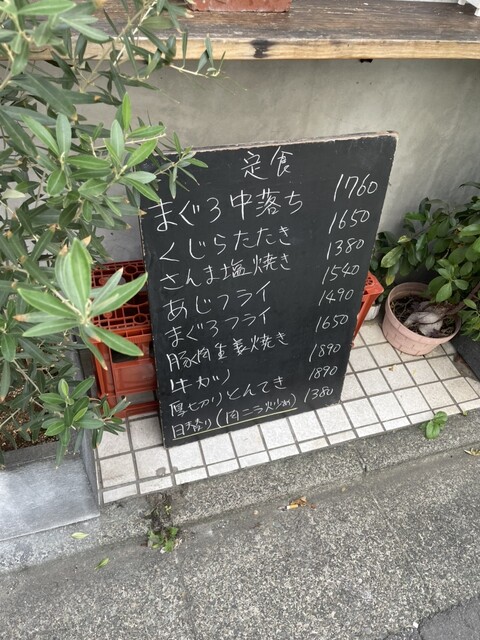 定食
まぐろ中落ち 1760
くじらたたき 1650
さんま塩焼き 1380
あじフライ 1540
まぐろフライ 1490
豚肉生姜焼き 1650
牛カツ 1890
厚切りとんてき 1890
日替り(肉ニラ炒め) 1380